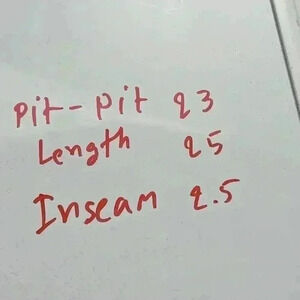 Pit-Pit 23
Length 25
Inseam 2.5